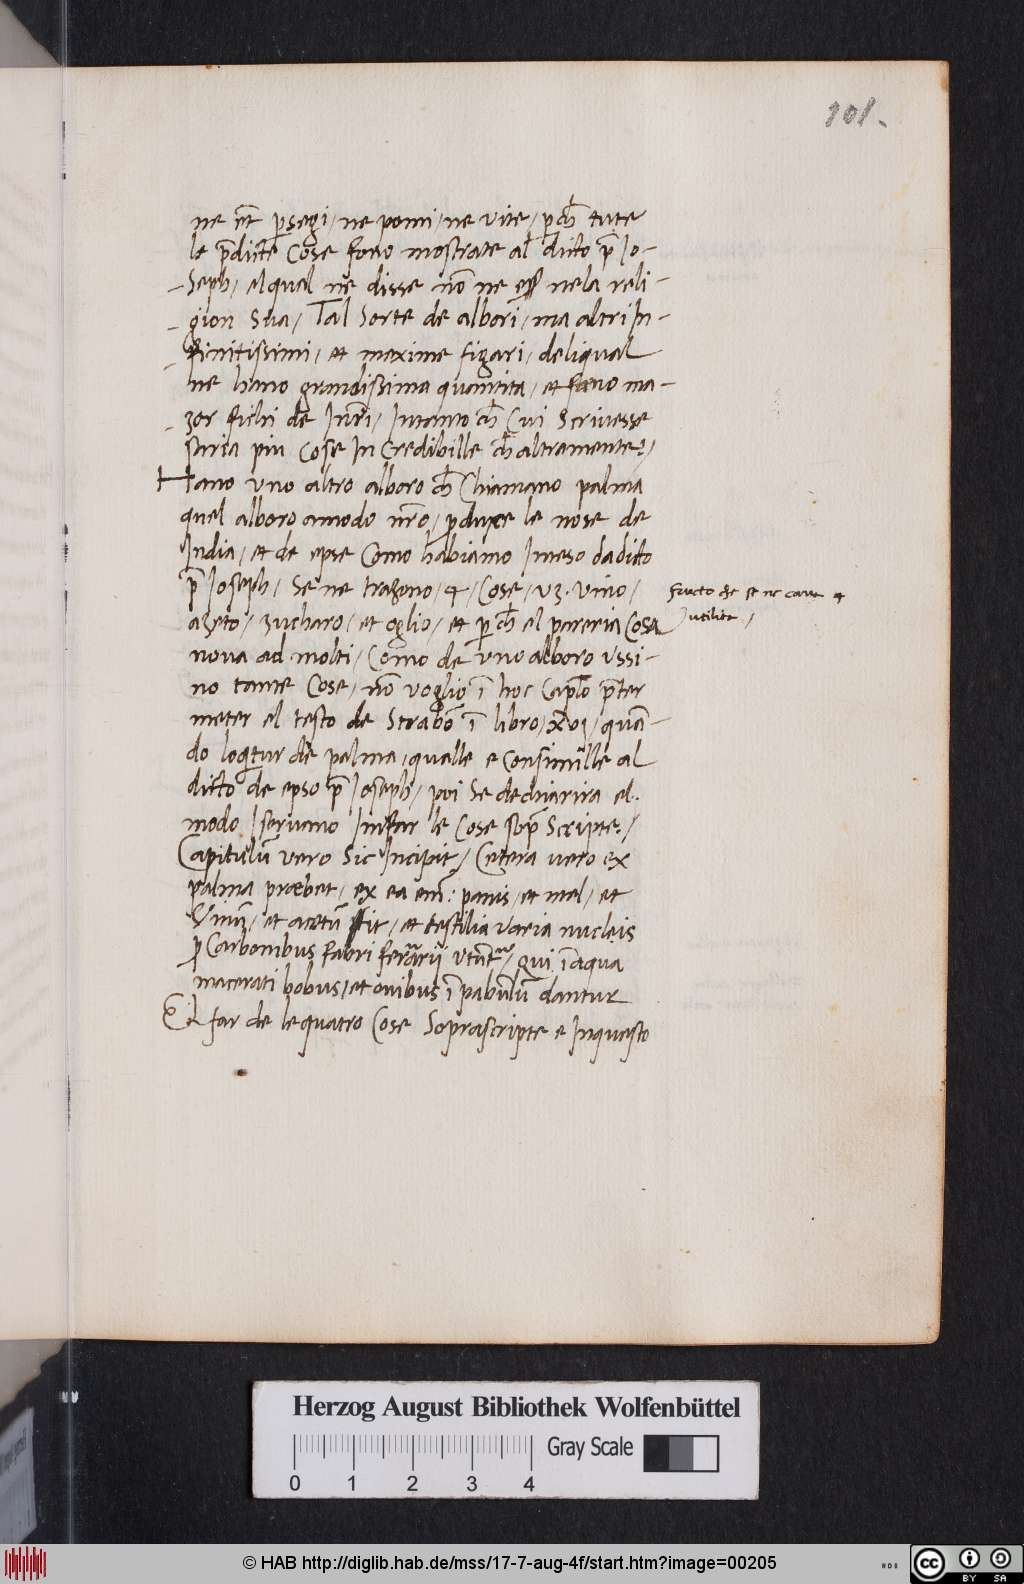 101.
ne et psegi / ne pomi / ne vite / pch tute
le pdicte Cose forno mostrate al dicto p Jo-
-seph / el qual ne disse nō ne esser nela reli-
-gion Sua / Tal Sorte de albori / ma altri In-
-finitissimi / et maxime figari / deliqual
ne hano grandissima quantita / et fano ma-
-zor fichi de Inri / Intanto ch Cui Scrivesse
staria piu Cose In Credibille ch altramente /
Hano uno altro alboro ch Chiamano palma
quel alboro amodo nro / pduxe le nose de
India / et de epse Como habiamo Inteso da dicto
p Joseph / Se ne trazeno / 4 / Cose / vz. vino /
azeto / zucharo / et oglio / et pch el pareria Cosa
nova ad molti / Como de uno alboro ussi-
no tante Cose / nō voglio ī hoc Caplo pter
meter el testo de Strabō ī libro / xvj / quā-
do loqitur de palma / qualle e Consimille al
dicto de epso p Joseph / poi Se dechiarira el
modo I servano In far le Cose sup Scripte /
Capitulū vero Sic Incipit / Cetera vero ex
palma præbet / ex ea em: panis / et mel / et
Vinū / et acetū fit / et textilia varia nucleis
p Carbonibus fabri ferrarii utūtur / qui ī aqua
macerati bobus / et ovibus ī pabulū dantur
El far de le quatro Cose Soprascripte e In questo
fructo de se ne cava 4
utilita /
Herzog August Bibliothek Wolfenbüttel
0 1 2 3 4
Gray Scale
© HAB http://diglib.hab.de/mss/17-7-aug-4f/start.htm?image=00205
cc BY SA